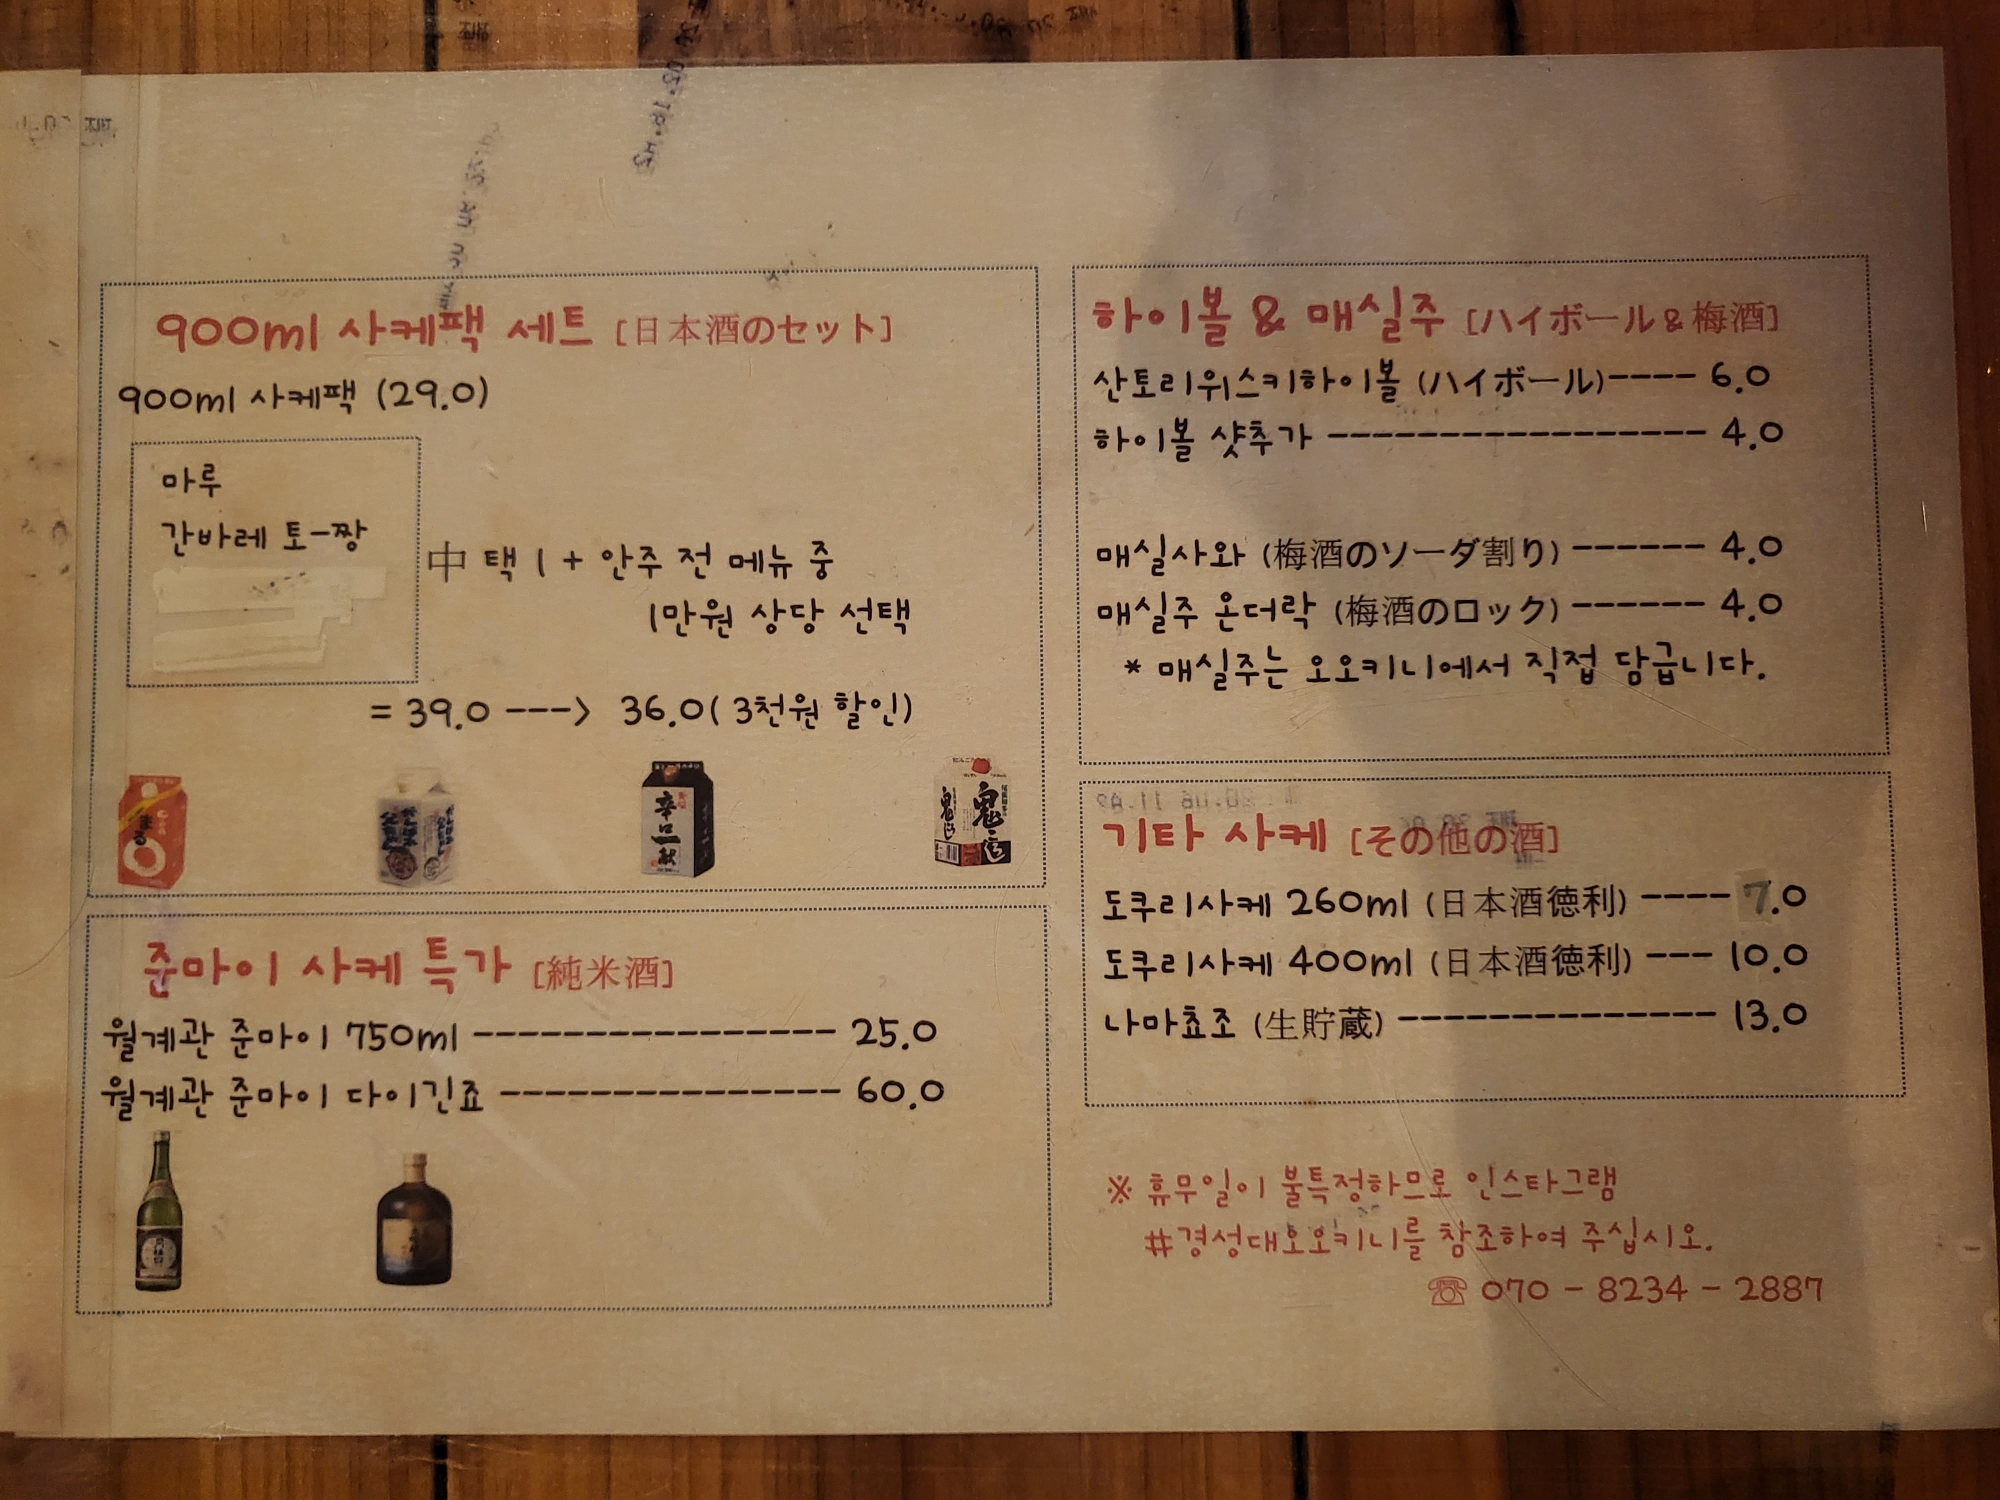 900ml 사케팩 세트 [日本酒のセット]
900ml 사케팩 (29.0)
마루
간바레 토-짱
中 택 1 + 안주 전 메뉴 중
1만원 상당 선택
= 39.0 ---> 36.0( 3천원 할인)
まる
辛口一献
鬼
준마이 사케 특가 [純米酒]
월계관 준마이 750ml ---------------- 25.0
월계관 준마이 다이긴죠 --------------- 60.0
하이볼 & 매실주 [ハイボール&梅酒]
산토리위스키하이볼 (ハイボール)---- 6.0
하이볼 샷추가 ----------------- 4.0
매실사와 (梅酒のソーダ割り) ------ 4.0
매실주 온더락 (梅酒のロック) ------ 4.0
* 매실주는 오오키니에서 직접 담급니다.
기타 사케 [その他の酒]
도쿠리사케 260ml (日本酒徳利) ---- 7.0
도쿠리사케 400ml (日本酒徳利) --- 10.0
나마쵸조 (生貯蔵) -------------- 13.0
※ 휴무일이 불특정하므로 인스타그램
#경성대오오키니를 참조하여 주십시오.
☏ 070 - 8234 - 2887